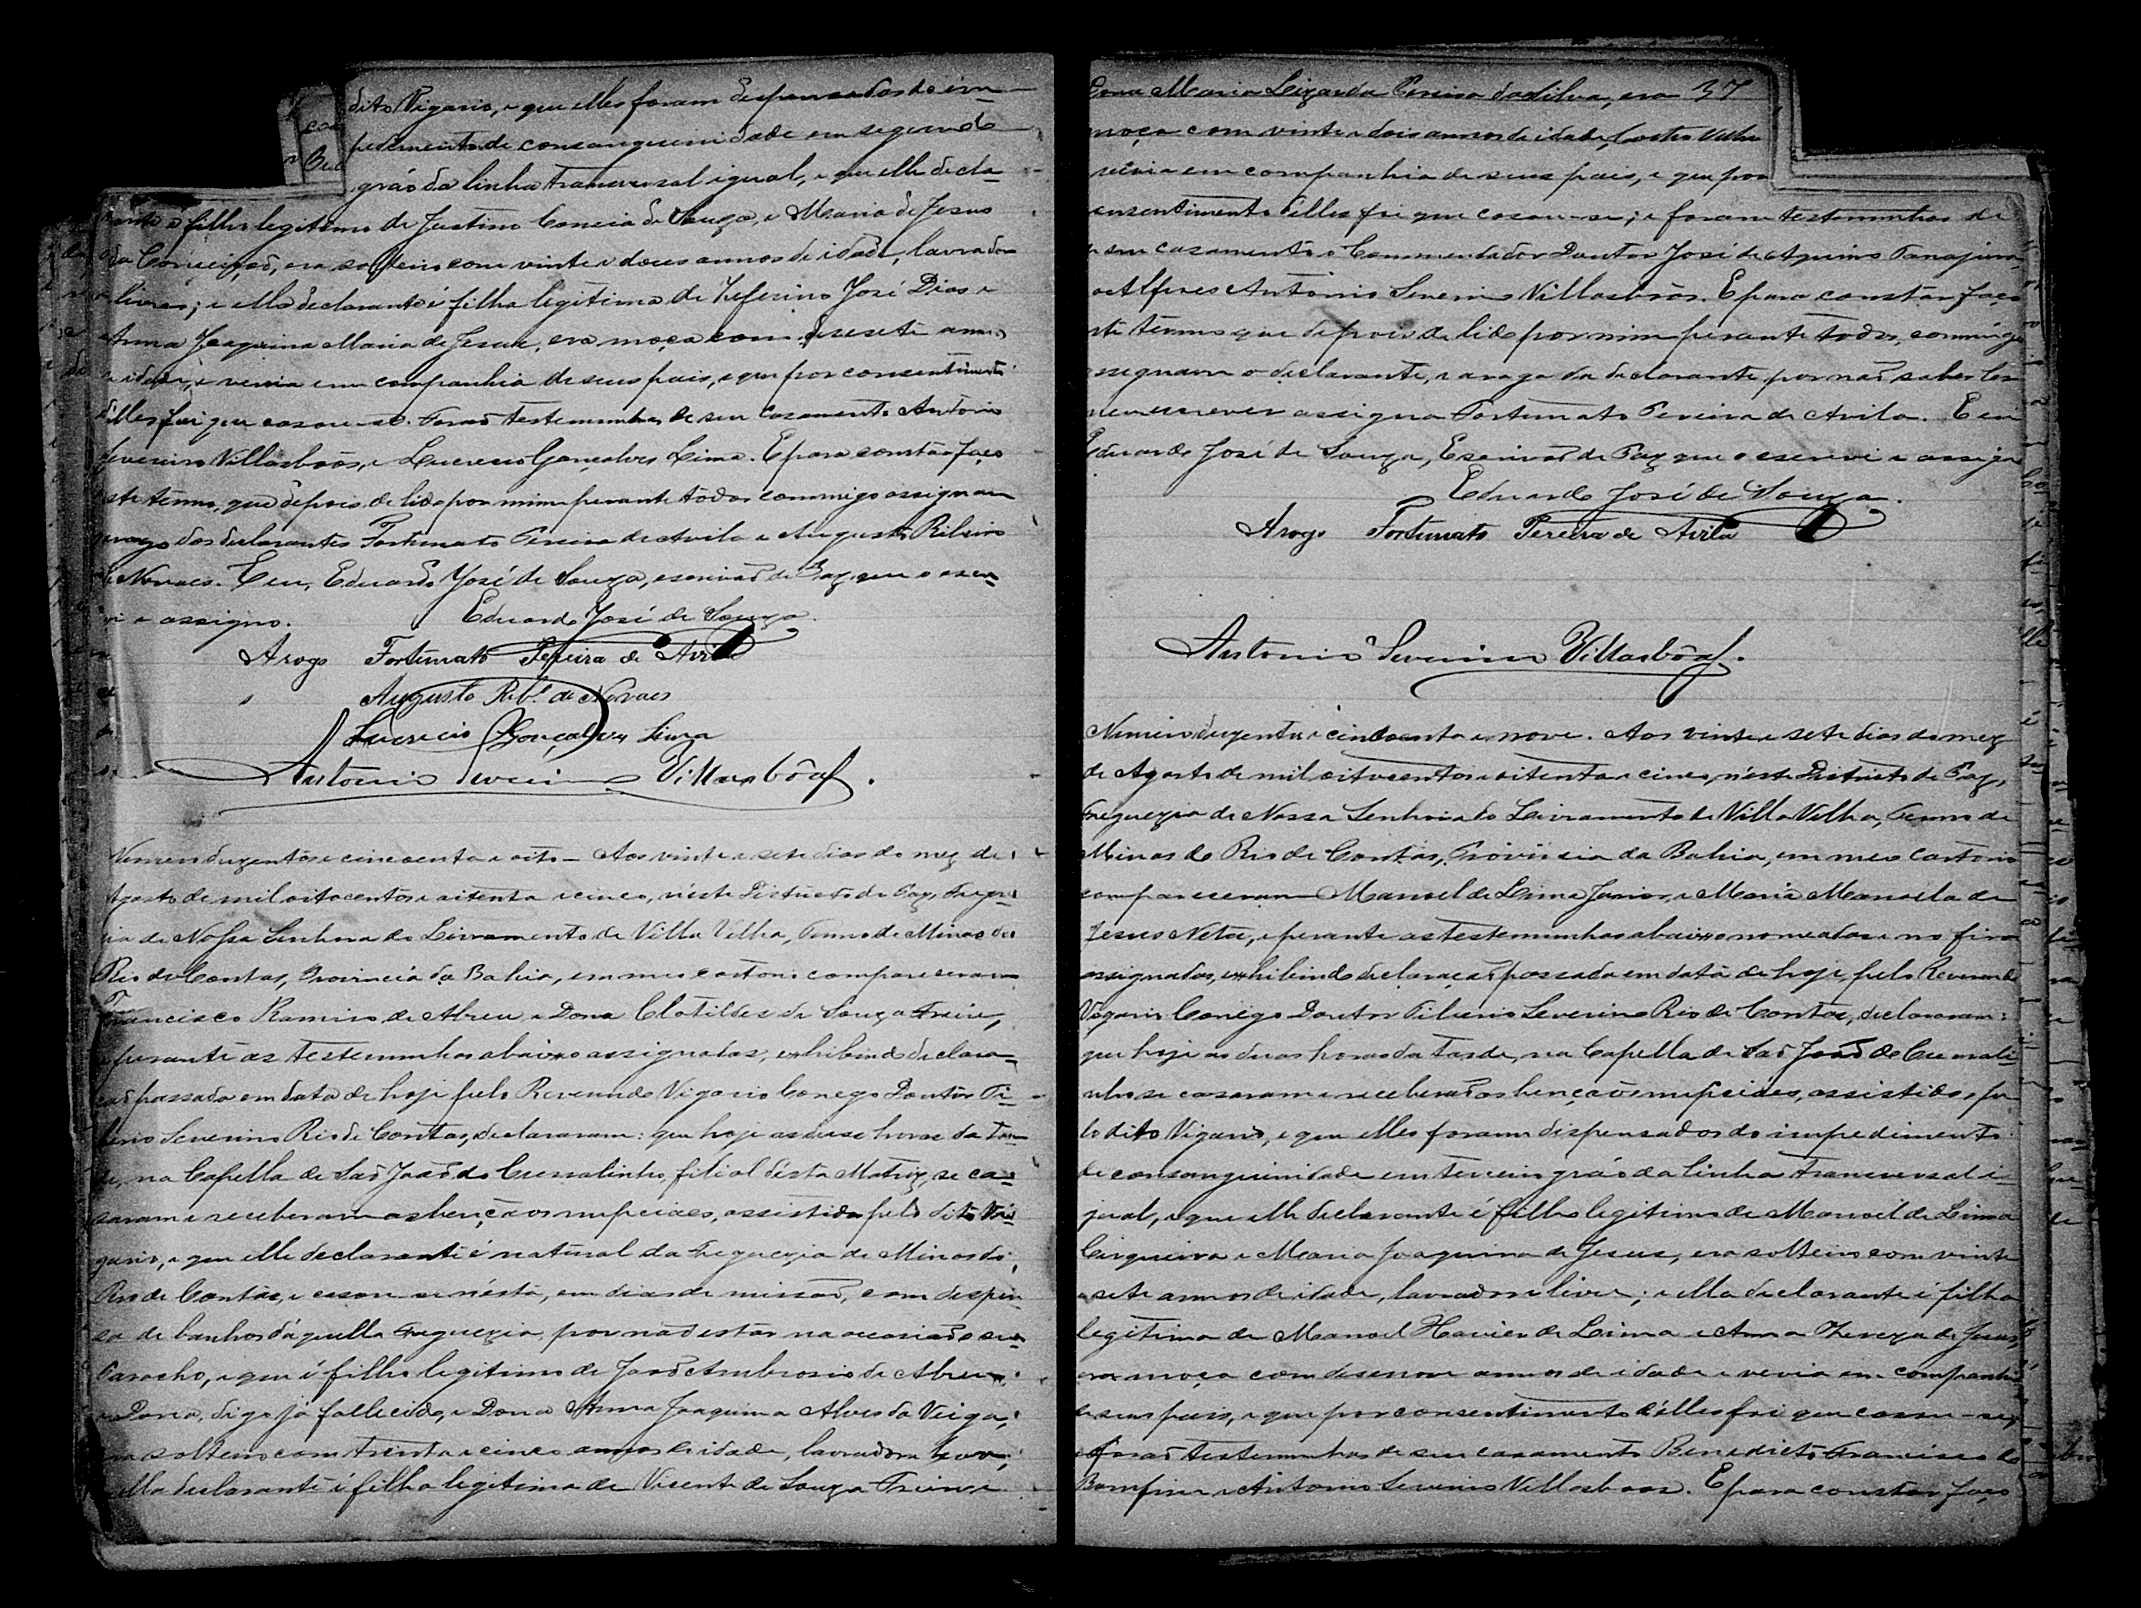 dito Vigario, e que elles foram despensados do im-
pedimento de consanguinidade em segundo
gráo da linha transversal igual, e que elle decla-
rante é filho legitimo de Justino Correia de Souza, e Maria de Jesus
da Conceiçaõ, era solteiro com vinte e dous annos de idade, lavrador
e livre; e ella declarante é filha legitima de Zeferino José Dias e
Anna Joaquina Maria de Jesus, era moça com desesete annos
de idade, e vevia em companhia de seus pais, e que por consentimento
d'elles foi que casou-se. Foraõ testemunhas de seu casamento Antonio
Severino Villasbôas, e Lucrecio Gonçalves Lima. E para constar faço
este termo, que depois de lido por mim perante todos commigo assignam
a rogo dos declarantes Fortunato Pereira de Avila e Augusto Ribeiro
de Novaes. E eu, Eduardo José de Souza, escrivaõ de Paz, que o escre-
vi e assigno. Eduardo José de Souza.
Arogo Fortunato Pereira de Avila
" Augusto Rib.º de Novaes
Lucrecio Gonçalves Lima
Antonio Severino Villasbôas.
Numero duzentos e cincoenta e oito - Aos vinte e sete dias do mez de
Agosto de mil oitocentos e oitenta e cinco, n'este Districto de Paz, Fregue-
zia de Nossa Senhora do Livramento de Villa Velha, Termo de Minas do
Rio de Contas, Provincia da Bahia, em meu cartorio compareceram
Francisco Ramiro de Abreu e Dona Clotildes de Souza Freire,
e perante as testemunhas abaixo assignadas, exhibindo declara-
çaõ passada em data de hoje pelo Reverendo Vigario Conego Doutor Ti-
berio Severino Rio de Contas, declararam: que hoje as duas horas da tar-
de, na Capella de Saõ Joaõ do Curralinho, filial desta Matriz, se ca-
saram e receberam as bençaõs nupciaes, assistidos pelo dito Vi-
gario, e que elle declarante é natural da Freguezia de Minas do
Rio de Contas, e casou-se n'esta, em dias de missaõ, com despen-
sa de banhos d'aquella Freguezia por naõ estar na occasiaõ o seu
Parocho, e que é filho legitimo de Joaõ Ambrosio de Abreu,
e Dona, digo já fallecido, e Dona Anna Joaquina Alves da Veiga,
era solteiro com trinta e cinco annos de idade, lavrador e livre;
e ella declarante é filha legitima de Vicente de Souza Freire e
Dona Maria Lizarda Pereira da Silva, era 37
moça com vinte e dois annos de idade,
vevia em companhia de seus pais, e que por
consentimento d'elles foi que casou-se; e foram testemunhas de
de seu casamento o Commendador Doutor José de Aquino Tanajura,
e o Alferes Antonio Severino Villasbôas. E para constar faço
este termo que depois de lido por mim perante todos, commigo
assignam o declarante, e a rogo da declarante por naõ saber ler
nem escrever assigna Fortunato Pereira de Avila. E eu
Eduardo José de Souza, Escrivaõ de Paz que o escrevi e assigno
Eduardo José de Souza.
Arogo Fortunato Pereira de Avila
Antonio Severino Villasbôas.
Numero duzentos e cincoenta e nove. Aos vinte e sete dias do mez
de Agosto de mil oitocentos e oitenta e cinco, n'este Districto de Paz,
Freguezia de Nossa Senhora do Livramento de Villa Velha, Termo de
Minas do Rio de Contas, Provincia da Bahia, em meu cartorio
compareceram Manoel de Lima Junior, e Maria Manoela de
Jesus Neta, e perante as testemunhas abaixo nomeadas e no fim
assignadas, exhibindo declaraçaõ passada em data de hoje, pelo Reverendo
Vigario Conego Doutor Tiberio Severino Rio de Contas, declararam:
que hoje as duas horas da tarde, na Capella de Saõ Joaõ do Currali-
nho se casaram e receberaõ as bençaõs nupciaes, assistidos pe-
lo dito Vigario, e que elles foram dispensados do impedimento
de consanguinidade em terceiro gráo da linha transversal i-
gual, e que elle declarante é filho legitimo de Manoel de Lima
Cirqueira e Maria Joaquina de Jesus, era solteiro com vinte
e sete annos de idade, lavrador e livre; e ella declarante é filha
legitima de Manoel Xavier de Lima e Anna Thereza de Jesus,
era moça com desenove annos de idade e vevia em companhia
de seus pais, e que por consentimento d'elles foi que casou-se,
e foraõ testemunhas de seu casamento Benedicto Francisco do
Bomfim e Antonio Severino Villasboas. E para constar faço